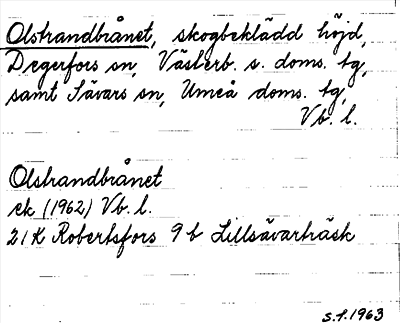 Olstrandbrånet, skogbeklädd höjd,
Degerfors sn, Västerb. s. doms. tg,
samt Sävars sn, Umeå doms. tg,
Vb. l.
Olstrandbrånet
ek (1962) Vb. l.
21K Robertsfors 9b Lillsävarträsk
S.f. 1963